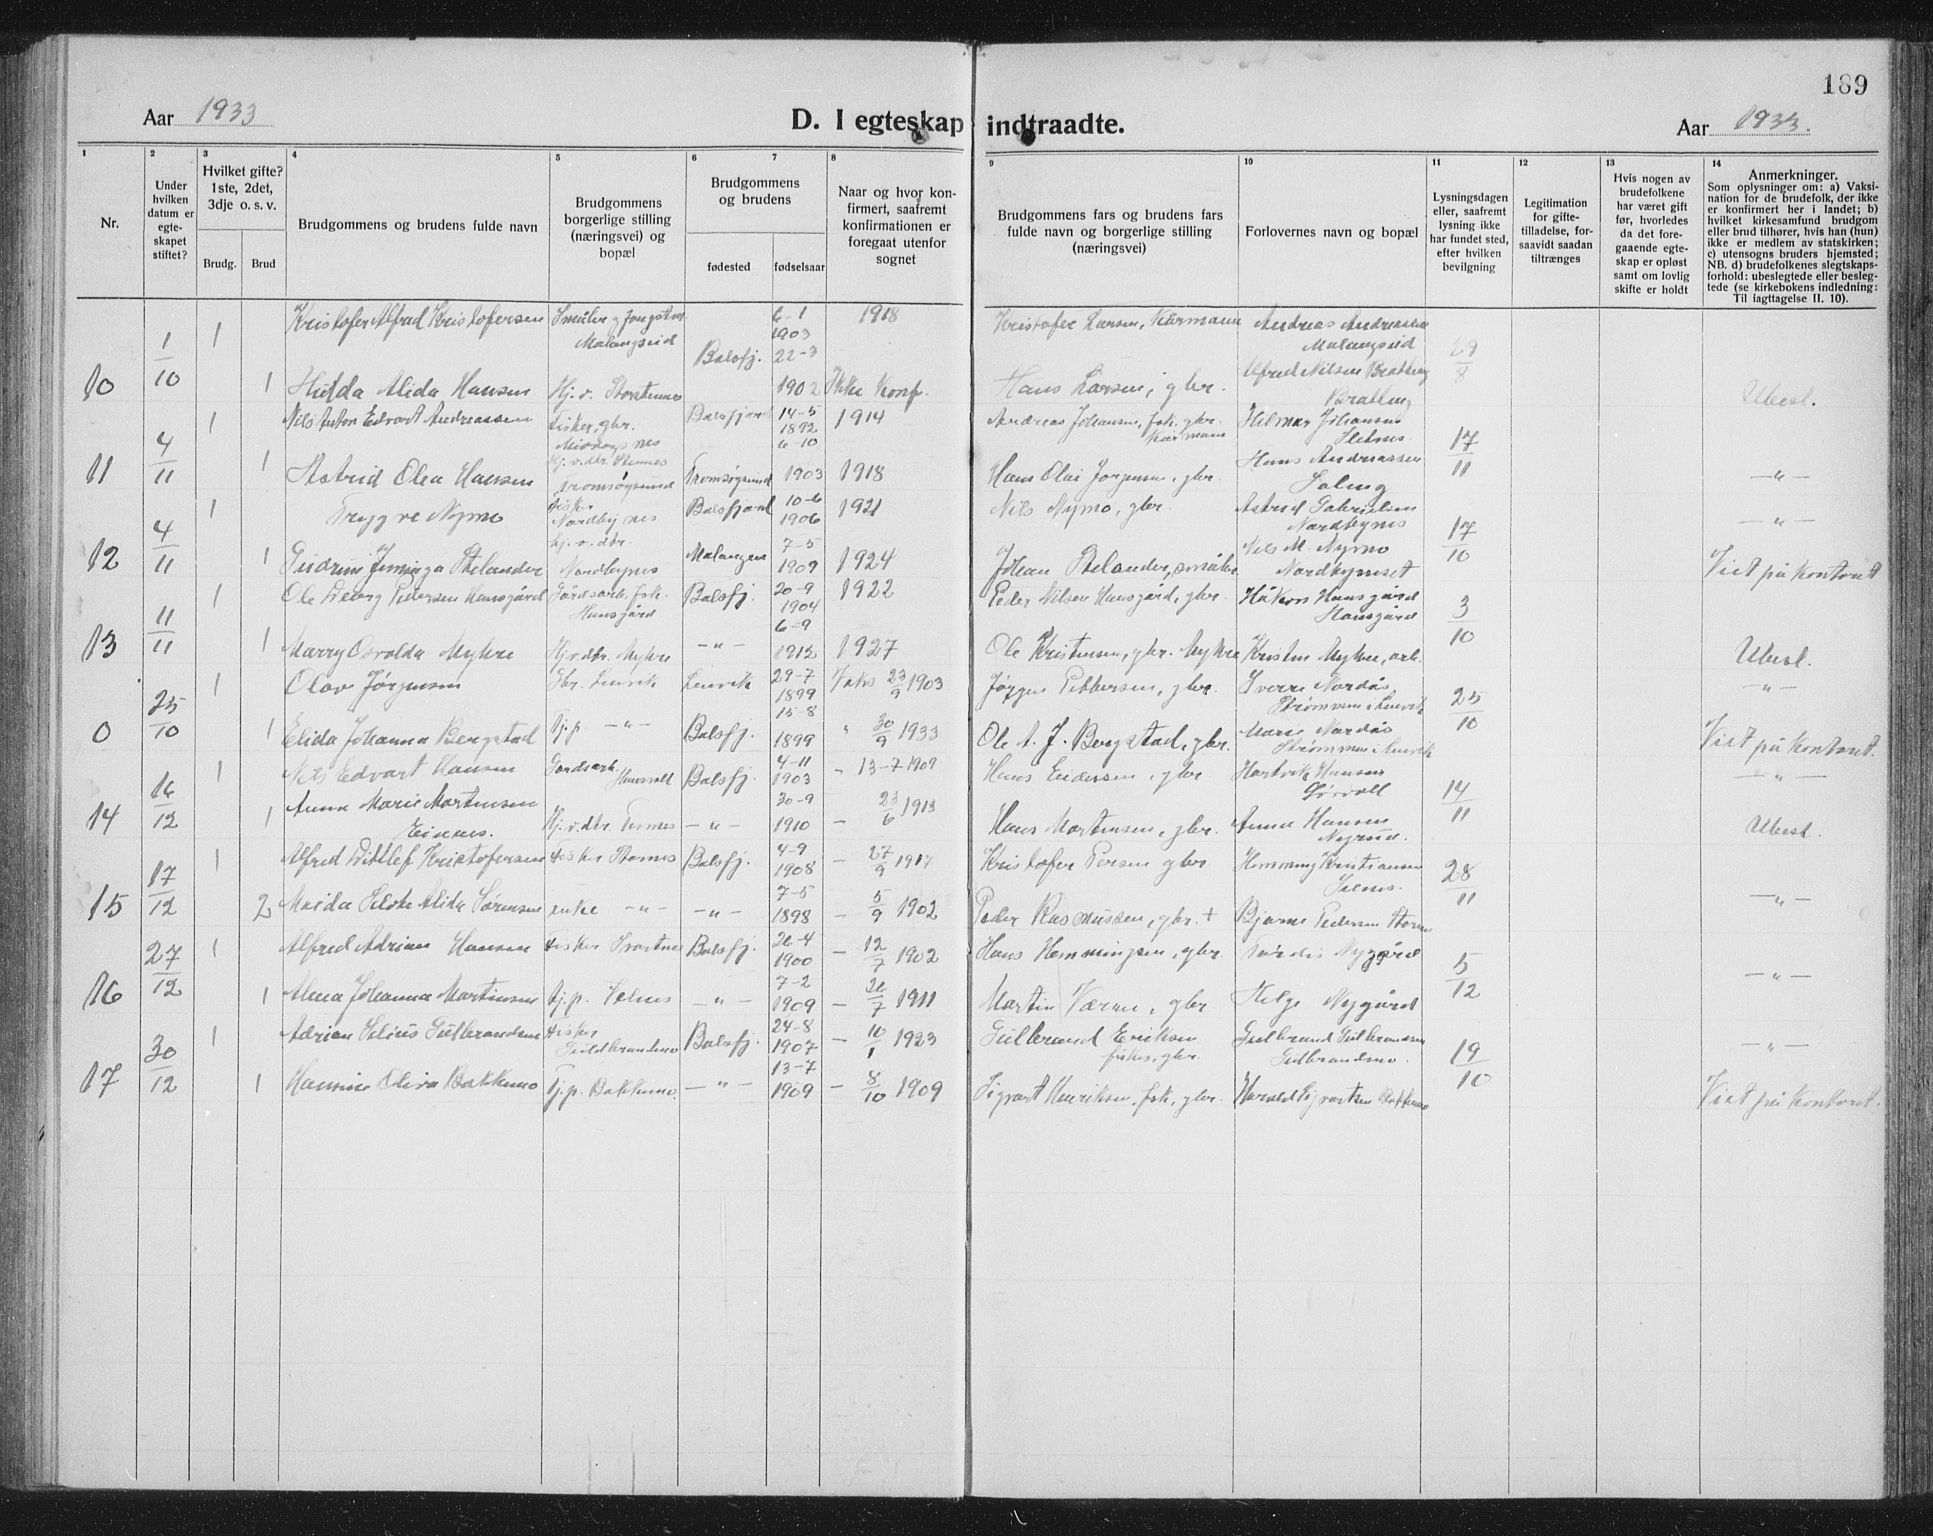 189
Aar 1933
D. I egteskap indtraadte.
Aar 1933.
1 2 3 4 5 6 7 8 9 10 11 12 13 14
Nr.
Under hvilken datum er egte-skapet stiftet?
Hvilket gifte? 1ste, 2det, 3dje o. s. v.
Brudg. Brud
Brudgommens og brudens fulde navn
Brudgommens borgerlige stilling (næringsvei) og bopæl
Brudgommens og brudens
fødested fødselsaar
Naar og hvor kon-firmert, saafremt konfirmationen er foregaat utenfor sognet
Brudgommens fars og brudens fars fulde navn og borgerlige stilling (næringsvei)
Forlovernes navn og bopæl
Lysningsdagen eller, saafremt lysning ikke har fundet sted, efter hvilken bevilgning
Legitimation for gifte-tilladelse, for-saavidt saadan tiltrænges
Hvis nogen av brudefolkene har været gift før, hvorledes da det fore-gaaende egte-skap er opløst samt om lovlig skifte er holdt
Anmerkninger.
Som oplysninger om: a) Vaksi-nation for de brudefolk, der ikke er konfirmert her i landet; b) hvilket kirkesamfund brudgom eller brud tilhører, hvis han (hun) ikke er medlem av statskirken; c) utensogns bruders hjemsted; NB. d) brudefolkenes slegtskaps-forhold: ubeslegtede eller besleg-tede (se kirkebokens indledning: Til iagttagelse II. 10).
1 Kristofer Alfred Kristofersen Malangseid 6-1 1903 1918 Kristofer Larsen, Kårmann Andreas Andreassen Malangseid
10 1/10 1 Hulda Alida Hansen Hj. v. Storsteinnes Balsfj. 22-3 1902 Ikke Konf. Hans Larsen, gbr. Alfred Nilsen 29/8 Ubesl.
1 Nils Anton Edvart Andreassen fisker, gbr. Balsfjord 14-5 1892 1914 Andreas Johansen, fsk. gbr. Kårmann Hilmar Johansen
11 4/11 1 Astrid Olea Hansen Hj. v. dtr. Tromsøysund Tromsøysund 6-10 1903 1918 Hans Olai Jørgensen, gbr. Hans Andreassen 17/11 — " —
1 Trygve Nymo fisker Nordbynes Balsfjord 10-6 1906 1921 Nils Nymo, gbr. Astrid Gabrielsen Nordbynes — " —
12 4/11 1 Gudrun Hj. v. dtr. Nordbynes Malangen 7-5 1909 1924 Johan Nils M. Nymo Nordbyneset 17/10 Viet på kontoret
1 Ole Georg Pedersen Hansgård Gårdsarb. fsk. Hansgård Balsfj. 20-9 1904 1922 Peder Nilsen Hansgård, gbr. Håkon Hansgård Hansgård
13 11/11 1 Marry Osvalda Myhre Hj. v. dtr. Myhre — " — 6-9 1912 1927 Ole Kristensen, gbr. Myhre Kristen Myhre, arb. 3/10 Ubesl.
1 Olav Jørgensen Gbr. Lenvik Lenvik 29-7 1899 Vaks 23/9 1903 Jørgen Pettersen, gbr. Sverre Nordås Strømmen i Lenvik — " —
0 25/10 1 Elida Johanna Bergstad Tj. p. — " — Balsfj. 15-8 1899 " 30/9 1933 Ole A. J. Bergstad, gbr. Marie Nordås Strømmen i Lenvik 25/10 Viet på kontoret.
1 Nils Edvart Hansen Gårdsarb. Balsfj. 4-11 1903 - 13-7 1909 Hans Endersen, gbr. Hartvik Hansen — " —
14 16/12 1 Anna Marie Martinsen Hj. v. dtr. — " — 30-9 1910 - 23/6 1913 Hans Martinsen, gbr. Anna Hansen 14/11 Ubesl.
1 Alfred Dittlef Kristofersen fisker Balsfj. 4-9 1908 - 27/9 1917 Kristofer Persen gbr Hemming Kristiansen Selnes.
15 17/12 2 Alida Sørensen enke — " — — " — 7-5 1898 - 5/9 1902 Peder Rasmussen, gbr. + Bjarne Pedersen 28/11 — " —
1 Alfred Adrian Hansen fisker Svartnes Balsfj. 26-4 1900 - 12/7 1902 Hans Hemmingsen, gbr Nygård
16 27/12 1 Alma Johanna Martinsen Tj. p. Selnes — " — 7-2 1909 - 26/7 1911 Martin gbr Helge Nygård 5/12 — " —
1 Adrian Gulbrandsen fisker Balsfj. 24-8 1907 - 10/1 1923 Gulbrand Eriksen fisker, gbr. Gulbrand Gulbrandsen Gulbrandsmo. — " —
17 30/12 1 Hansine Oliva Bakkemo Tj. p. Bakkemo. — " — 13-7 1909 - 8/10 1909 Sigvart Henriksen, fsk. gbr. Harald Sigvartsen Bakkemo 19/10 Viet på kontoret.